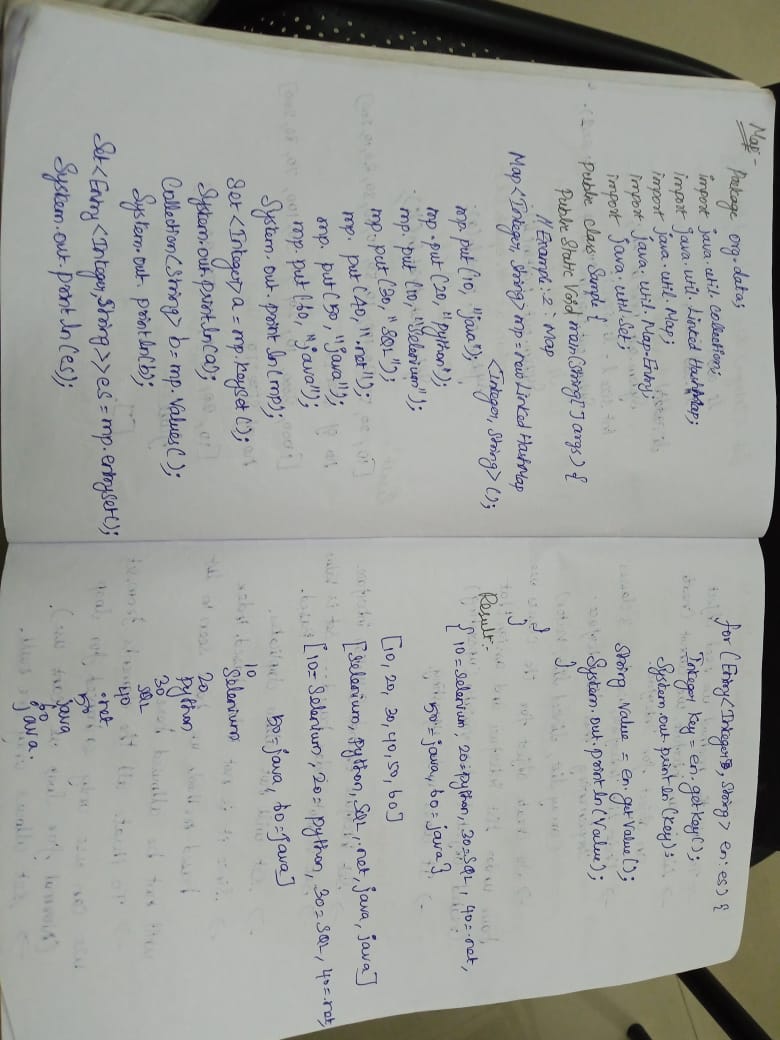 Map -
Package org.data;
import java.util.Collection;
import java.util.Linked HashMap;
import java.util.Map;
import java.util.Map.Entry;
import java.util.Set;
Public class Sample {
Public Static Void main(String[] args) {
// Example:2: Map
Map<Integer, String> mp = new Linked HashMap
<Integer, String>();
mp.put(10, "java");
mp.put(20, "python");
mp.put(10, "Selenium");
mp.put(30, "SQL");
mp.put(40, ".net");
mp.put(50, "java");
mp.put(60, "java");
System.out.println(mp);
Set<Integer> a = mp.keySet();
System.out.println(a);
Collection<String> b = mp.Values();
System.out.println(b);
Set<Entry<Integer,String>> es = mp.entrySet();
System.out.println(es);
for (Entry<Integer, String> en: es) {
Integer key = en.getKey();
System.out.println(key);
String value = en.getValue();
System.out.println(value);
}
}
}
Result:-
{10=Selenium, 20=python, 30=SQL, 40=.net,
50=java, 60=java}
[10, 20, 30, 40, 50, 60]
[Selenium, python, SQL, .net, java, java]
[10=Selenium, 20=python, 30=SQL, 40=.net,
50=java, 60=java]
10
Selenium
20
Python
30
SQL
40
.net
50
java
60
java.